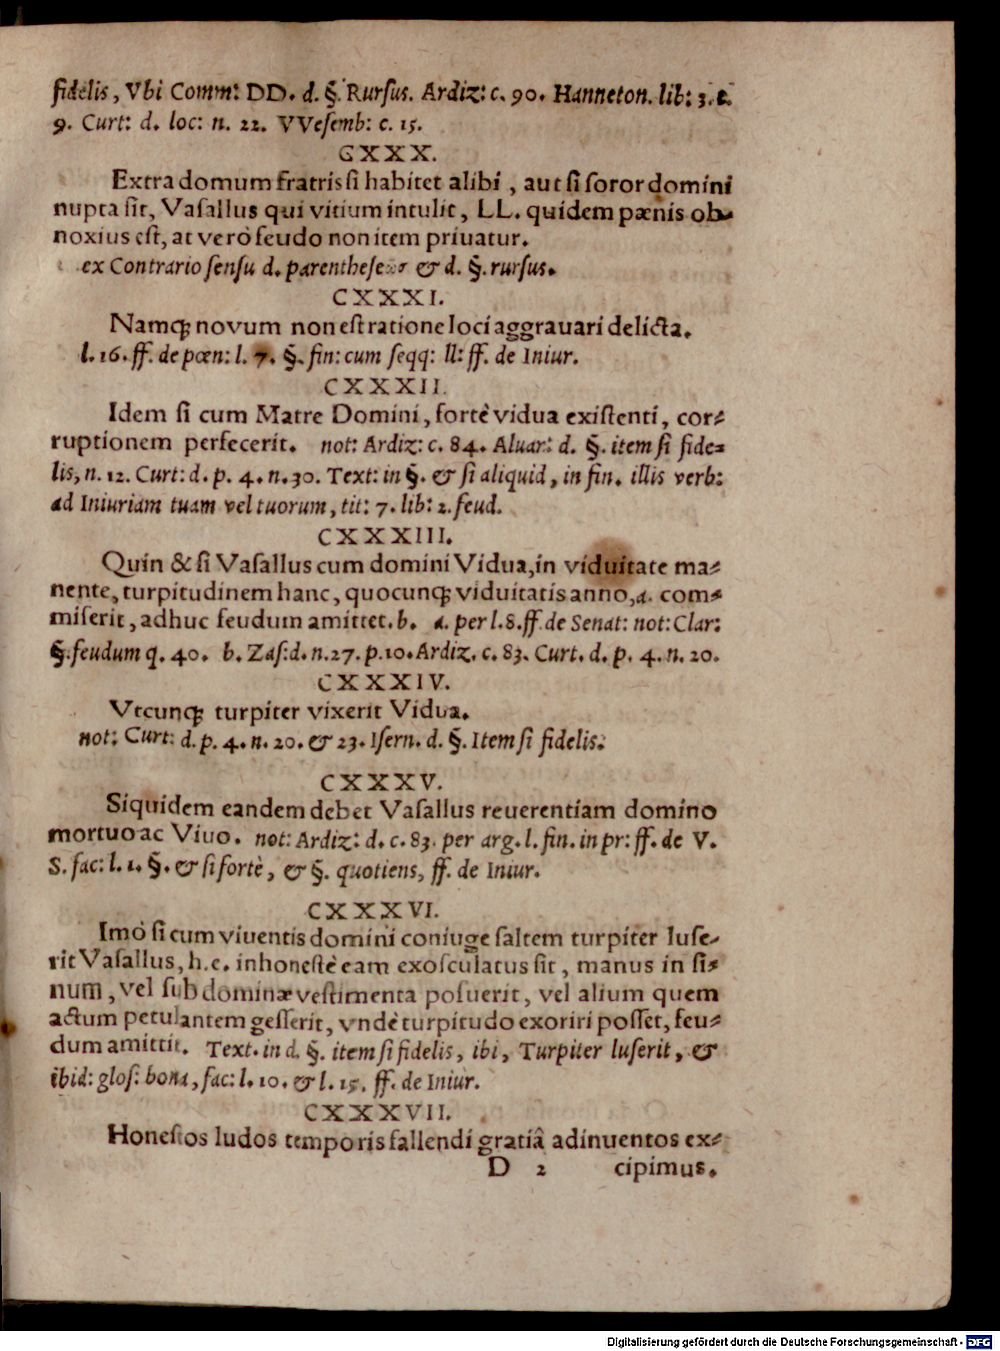 fidelis, Vbi Comm: DD. d. §. Rursus. Ardiz: c. 90. Hanneton. lib: 3. c.
9. Curt: d. loc: n. 22. VVesemb: c. 15.
CXXX.
Extra domum fratris si habitet alibi, aut si soror domini
nupta sit, Vasallus qui vitium intulit, LL. quidem pænis ob-
noxius est, at verò feudo non item priuatur.
ex Contrario sensu d. parenthese & d. §. rursus.
CXXXI.
Namq; novum non est ratione loci aggrauari delicta.
l. 16. ff. de pœn: l. 7. §. fin: cum seqq: ll: ff. de Iniur.
CXXXII.
Idem si cum Matre Domini, fortè vidua existenti, cor-
ruptionem perfecerit. not: Ardiz: c. 84. Aluar: d. §. item si fide-
lis, n. 12. Curt: d. p. 4. n. 30. Text: in §. & si aliquid, in fin. illis verb:
ad Iniuriam tuam vel tuorum, tit: 7. lib: 2. feud.
CXXXIII.
Quin & si Vasallus cum domini Vidua, in viduitate ma-
nente, turpitudinem hanc, quocunq; viduitatis anno, a. com-
miserit, adhuc feudum amittet. b. a. per l. 8. ff. de Senat: not: Clar:
§. feudum q. 40. b. Zas: d. n. 27. p. 10. Ardiz. c. 83. Curt. d. p. 4. n. 20.
CXXXIV.
Vtcunq; turpiter vixerit Vidua.
not: Curt: d. p. 4. n. 20. & 23. Isern. d. §. Item si fidelis.
CXXXV.
Siquidem eandem debet Vasallus reuerentiam domino
mortuo ac Viuo. not: Ardiz: d. c. 83. per arg. l. fin. in pr: ff. de V.
S. fac: l. 1. §. & si fortè, & §. quotiens, ff. de Iniur.
CXXXVI.
Imò si cum viuentis domini coniuge saltem turpiter luse-
rit Vasallus, h.e. inhonestè eam exosculatus sit, manus in si-
num, vel sub dominæ vestimenta posuerit, vel alium quem
actum petulantem gesserit, vndè turpitudo exoriri posset, feu-
dum amittit. Text. in d. §. item si fidelis, ibi, Turpiter luserit, &
ibid: glos: bona, fac: l. 10. & l. 15. ff. de Iniur.
CXXXVII.
Honestos ludos temporis fallendi gratiâ adinuentos ex-
D 2 cipimus.
Digitalisierung gefördert durch die Deutsche Forschungsgemeinschaft - DFG